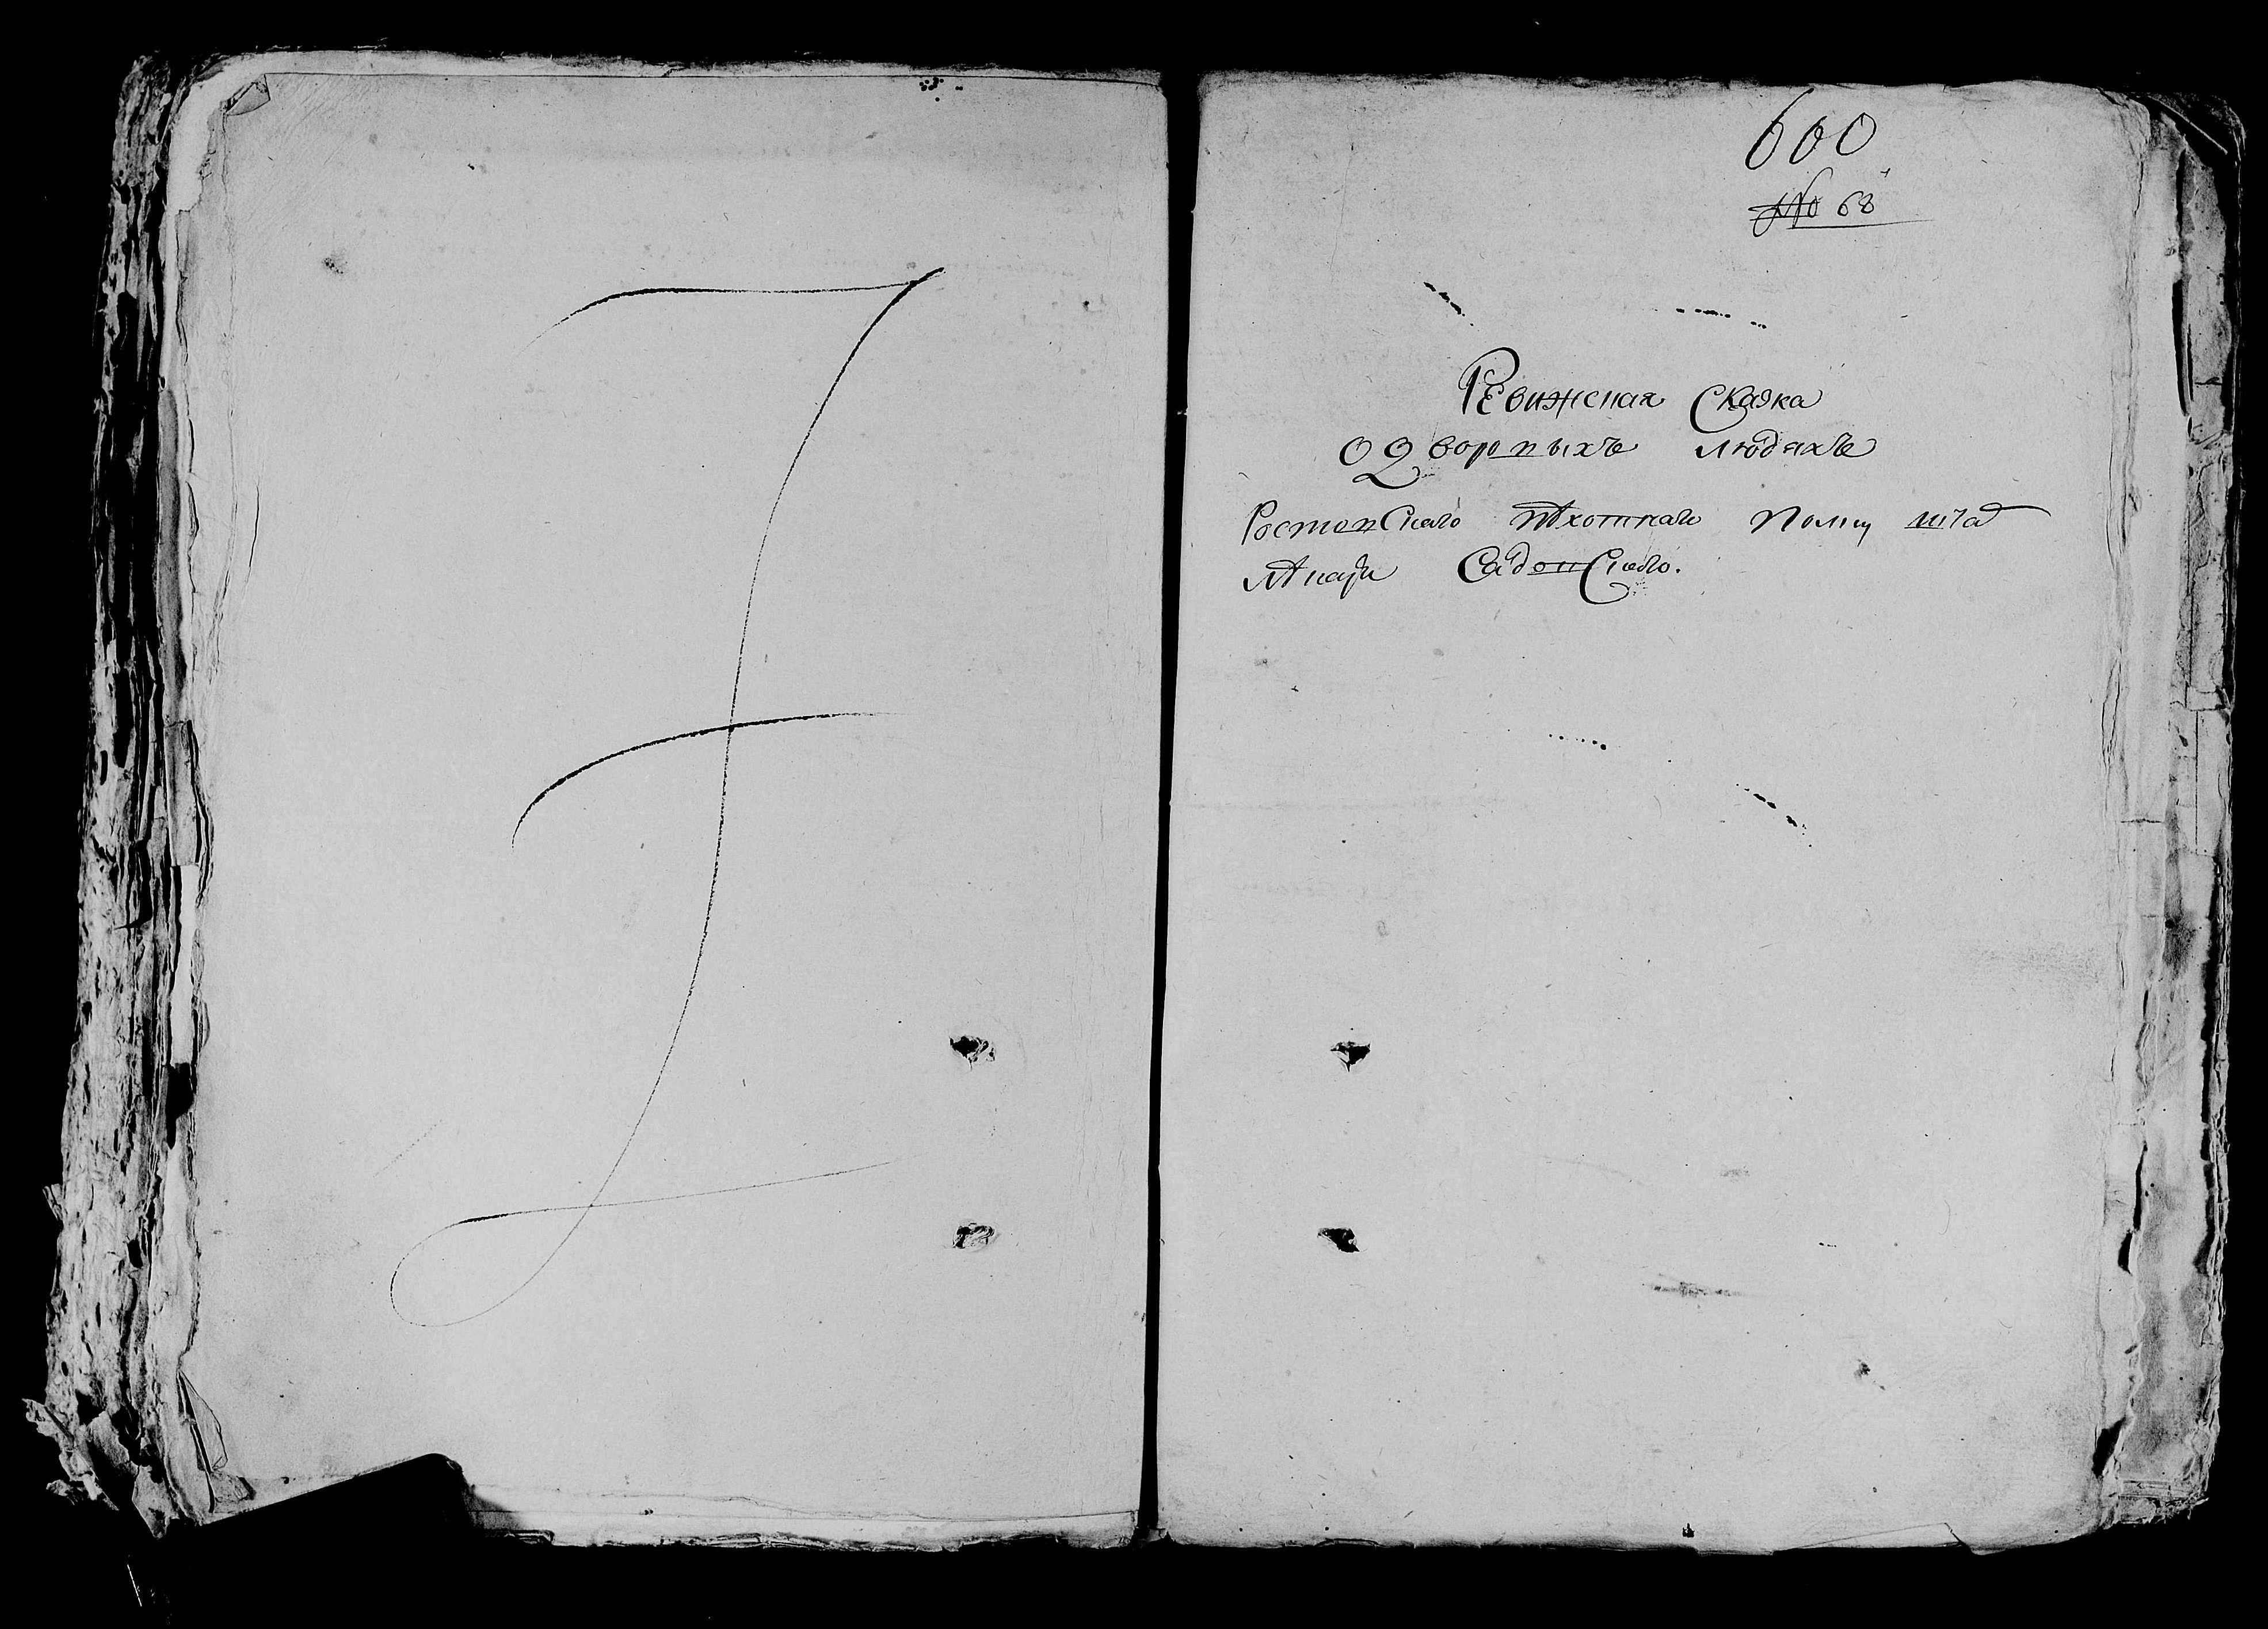 600
№ 68
Ревижская Сказка
о Дворныхъ людяхъ
Ростовскаго пѣхотнаго полку штаб
лѣкаря Садовскаго.